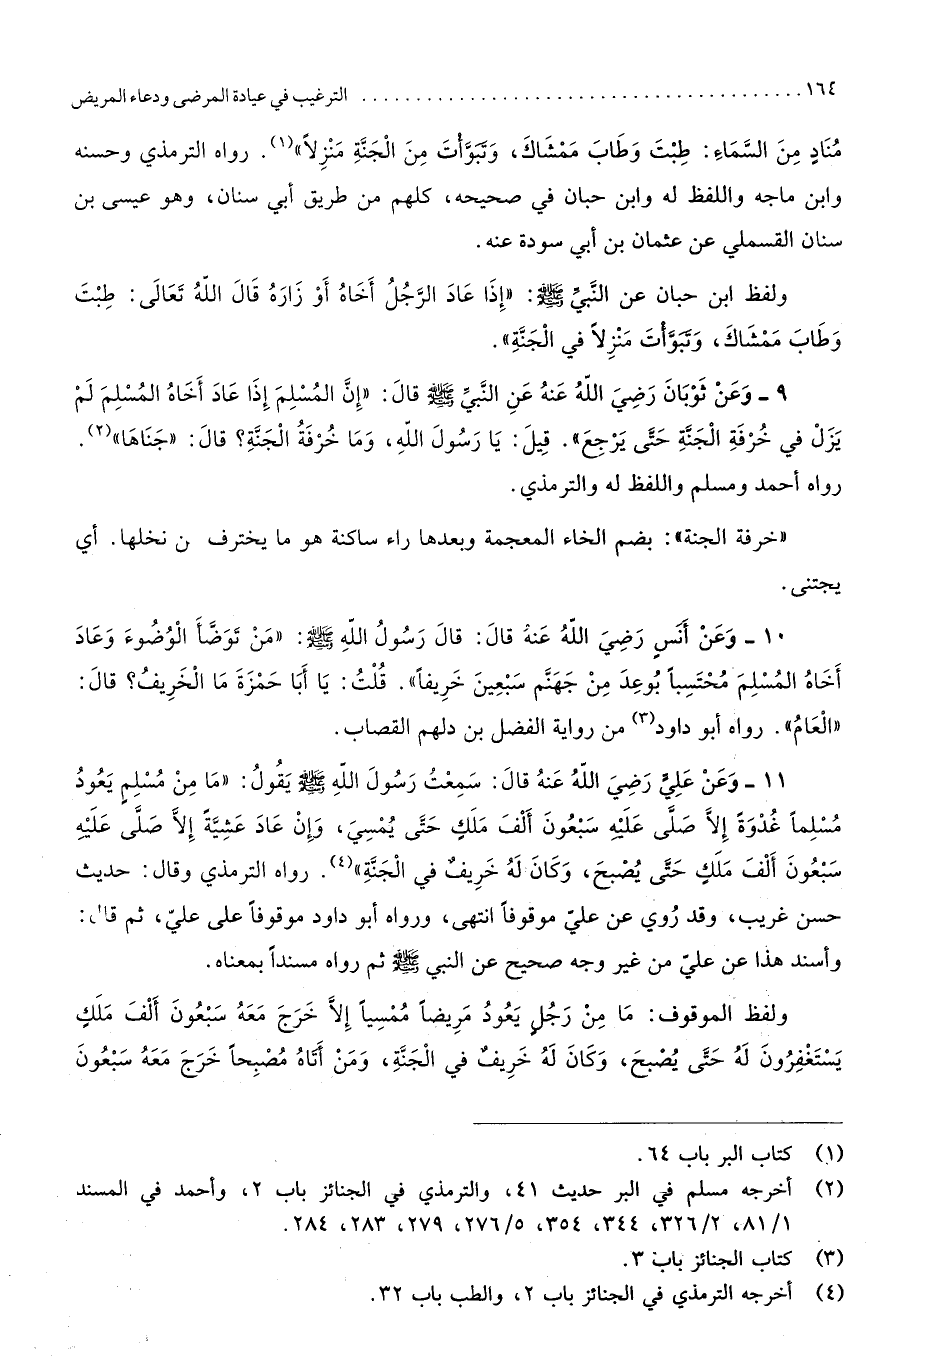 ١٦٤ ........................................ الترغيب في عيادة المرضى ودعاء المريض
مُنَادٍ مِنَ السَّمَاءِ: طِبْتَ وَطَابَ مَمْشَاكَ، وَتَبَوَّأْتَ مِنَ الْجَنَّةِ مَنْزِلاً»(١). رواه الترمذي وحسنه
وابن ماجه واللفظ له وابن حبان في صحيحه، كلهم من طريق أبي سنان، وهو عيسى بن
سنان القسملي عن عثمان بن أبي سودة عنه.
ولفظ ابن حبان عن النَّبيِّ ﷺ: «إِذَا عَادَ الرَّجُلُ أَخَاهُ أَوْ زَارَهُ قَالَ اللَّهُ تَعَالَى: طِبْتَ
وَطَابَ مَمْشَاكَ، وَتَبَوَّأْتَ مَنْزِلاً في الْجَنَّةِ».
٩ ـ وَعَنْ ثَوْبَانَ رَضِيَ اللَّهُ عَنهُ عَنِ النَّبيِّ ﷺ قالَ: «إِنَّ المُسْلِمَ إِذَا عَادَ أَخَاهُ المُسْلِمَ لَمْ
يَزَلْ في خُرْفَةِ الْجَنَّةِ حَتَّى يَرْجِعَ». قِيلَ: يَا رَسُولَ اللَّهِ، وَمَا خُرْفَةُ الْجَنَّةِ؟ قالَ: «جَنَاهَا»(٢).
رواه أحمد ومسلم واللفظ له والترمذي.
«خرفة الجنة»: بضم الخاء المعجمة وبعدها راء ساكنة هو ما يخترف ن نخلها. أي
يجتنى.
١٠ ـ وَعَنْ أَنَسٍ رَضِيَ اللَّهُ عَنهُ قالَ: قالَ رَسُولُ اللَّهِ ﷺ: «مَنْ تَوَضَّأَ الْوُضُوءَ وَعَادَ
أَخَاهُ المُسْلِمَ مُحْتَسِباً بُوعِدَ مِنْ جَهَنَّم سَبْعِينَ خَرِيفاً». قُلْتُ: يَا أَبَا حَمْزَةَ مَا الْخَرِيفُ؟ قالَ:
«الْعَامُ». رواه أبو داود(٣) من رواية الفضل بن دلهم القصاب.
١١ ـ وَعَنْ عَلِيٍّ رَضِيَ اللَّهُ عَنهُ قالَ: سَمِعْتُ رَسُولَ اللَّهِ ﷺ يَقُولُ: «مَا مِنْ مُسْلِمٍ يَعُودُ
مُسْلِماً غُدْوَةً إِلاَّ صَلَّى عَلَيْهِ سَبْعُونَ أَلْفَ مَلَكٍ حَتَّى يُمْسِيَ، وَإِنْ عَادَ عَشِيَّةً إِلاَّ صَلَّى عَلَيْهِ
سَبْعُونَ أَلْفَ مَلَكٍ حَتَّى يُصْبِحَ، وَكَانَ لَهُ خَرِيفٌ في الْجَنَّةِ»(٤). رواه الترمذي وقال: حديث
حسن غريب، وقد رُوي عن عليّ موقوفاً انتهى، ورواه أبو داود موقوفاً على عليّ، ثم قال:
وأسند هذا عن عليّ من غير وجه صحيح عن النبي ﷺ ثم رواه مسنداً بمعناه.
ولفظ الموقوف: مَا مِنْ رَجُلٍ يَعُودُ مَرِيضاً مُمْسِياً إِلاَّ خَرَجَ مَعَهُ سَبْعُونَ أَلْفَ مَلَكٍ
يَسْتَغْفِرُونَ لَهُ حَتَّى يُصْبِحَ، وَكَانَ لَهُ خَرِيفٌ في الْجَنَّةِ، وَمَنْ أَتَاهُ مُصْبِحاً خَرَجَ مَعَهُ سَبْعُونَ
(١) كتاب البر باب ٦٤.
(٢) أخرجه مسلم في البر حديث ٤١، والترمذي في الجنائز باب ٢، وأحمد في المسند
١/ ٨١، ٢/ ٣٢٦، ٣٤٤، ٣٥٤، ٥/ ٢٧٦، ٢٧٩، ٢٨٣، ٢٨٤.
(٣) كتاب الجنائز باب ٣.
(٤) أخرجه الترمذي في الجنائز باب ٢، والطب باب ٣٢.